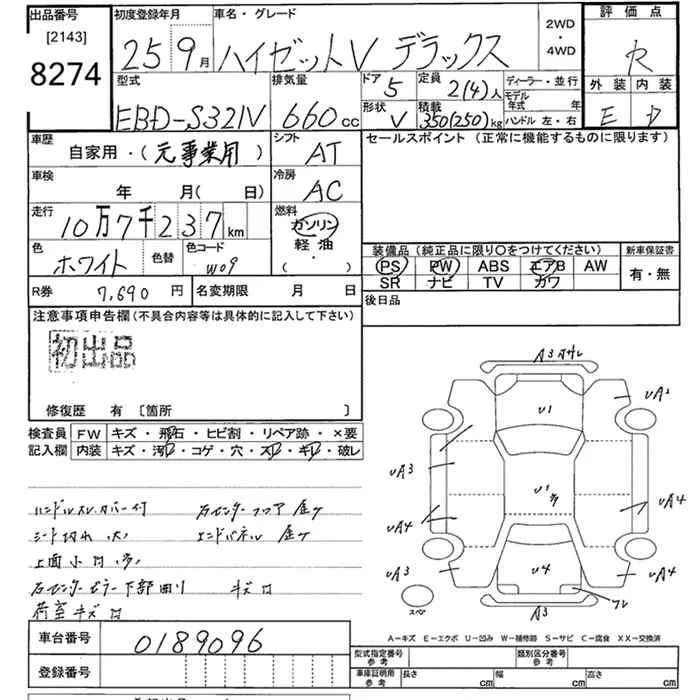 出品番号
[2143]
8274
初度登録年月
25 9月
車名・グレード
ハイゼットV デラックス
2WD
・
4WD
評価点
R
外装 内装
E D
型式
EBD-S321V
排気量
660cc
ドア 5
形状 V
定員 2(4)人
積載 350(250)kg
ディーラー・並行
モデル年式 年
ハンドル 左・右
車歴
自家用・(元事業用)
シフト
AT
セールスポイント (正常に機能するものに限ります)
車検
年 月(日)
冷房
AC
走行
10万7千237km
燃料
ガソリン
軽油
・
( )
色
ホワイト
色替
色コード
W09
装備品 (純正品に限り〇をつけてください)
PS PW ABS エアB AW
SR ナビ TV カワ
新車保証書
有・無
R券 7,690円
名変期限 月 日
後日品
注意事項申告欄 (不具合内容等は具体的に記入して下さい)
初出品
修復歴 有 [箇所 ]
検査員
記入欄
FW キズ・飛石・ヒビ割・リペア跡・×要
内装 キズ・汚れ・コゲ・穴・スレ・キレ・破レ
ハンドルスレ カバー付
右センターフロア 歪ケ
シート切れ 大
エンドパネル 歪ケ
上面小凹 多
右センターピラー下部曲り キズ凹
荷室キズ凹
A3
U1
UA2
UA3
UA4
UA4
UA3
U4
UA4
スペア
A3
A-キズ E-エクボ U-凹み W-補修跡 S-サビ C-腐食 XX-交換済
車台番号 0189096
登録番号
型式指定番号
参考
類別区分番号
参考
車庫証明用
参考
長さ cm 幅 cm 高さ cm